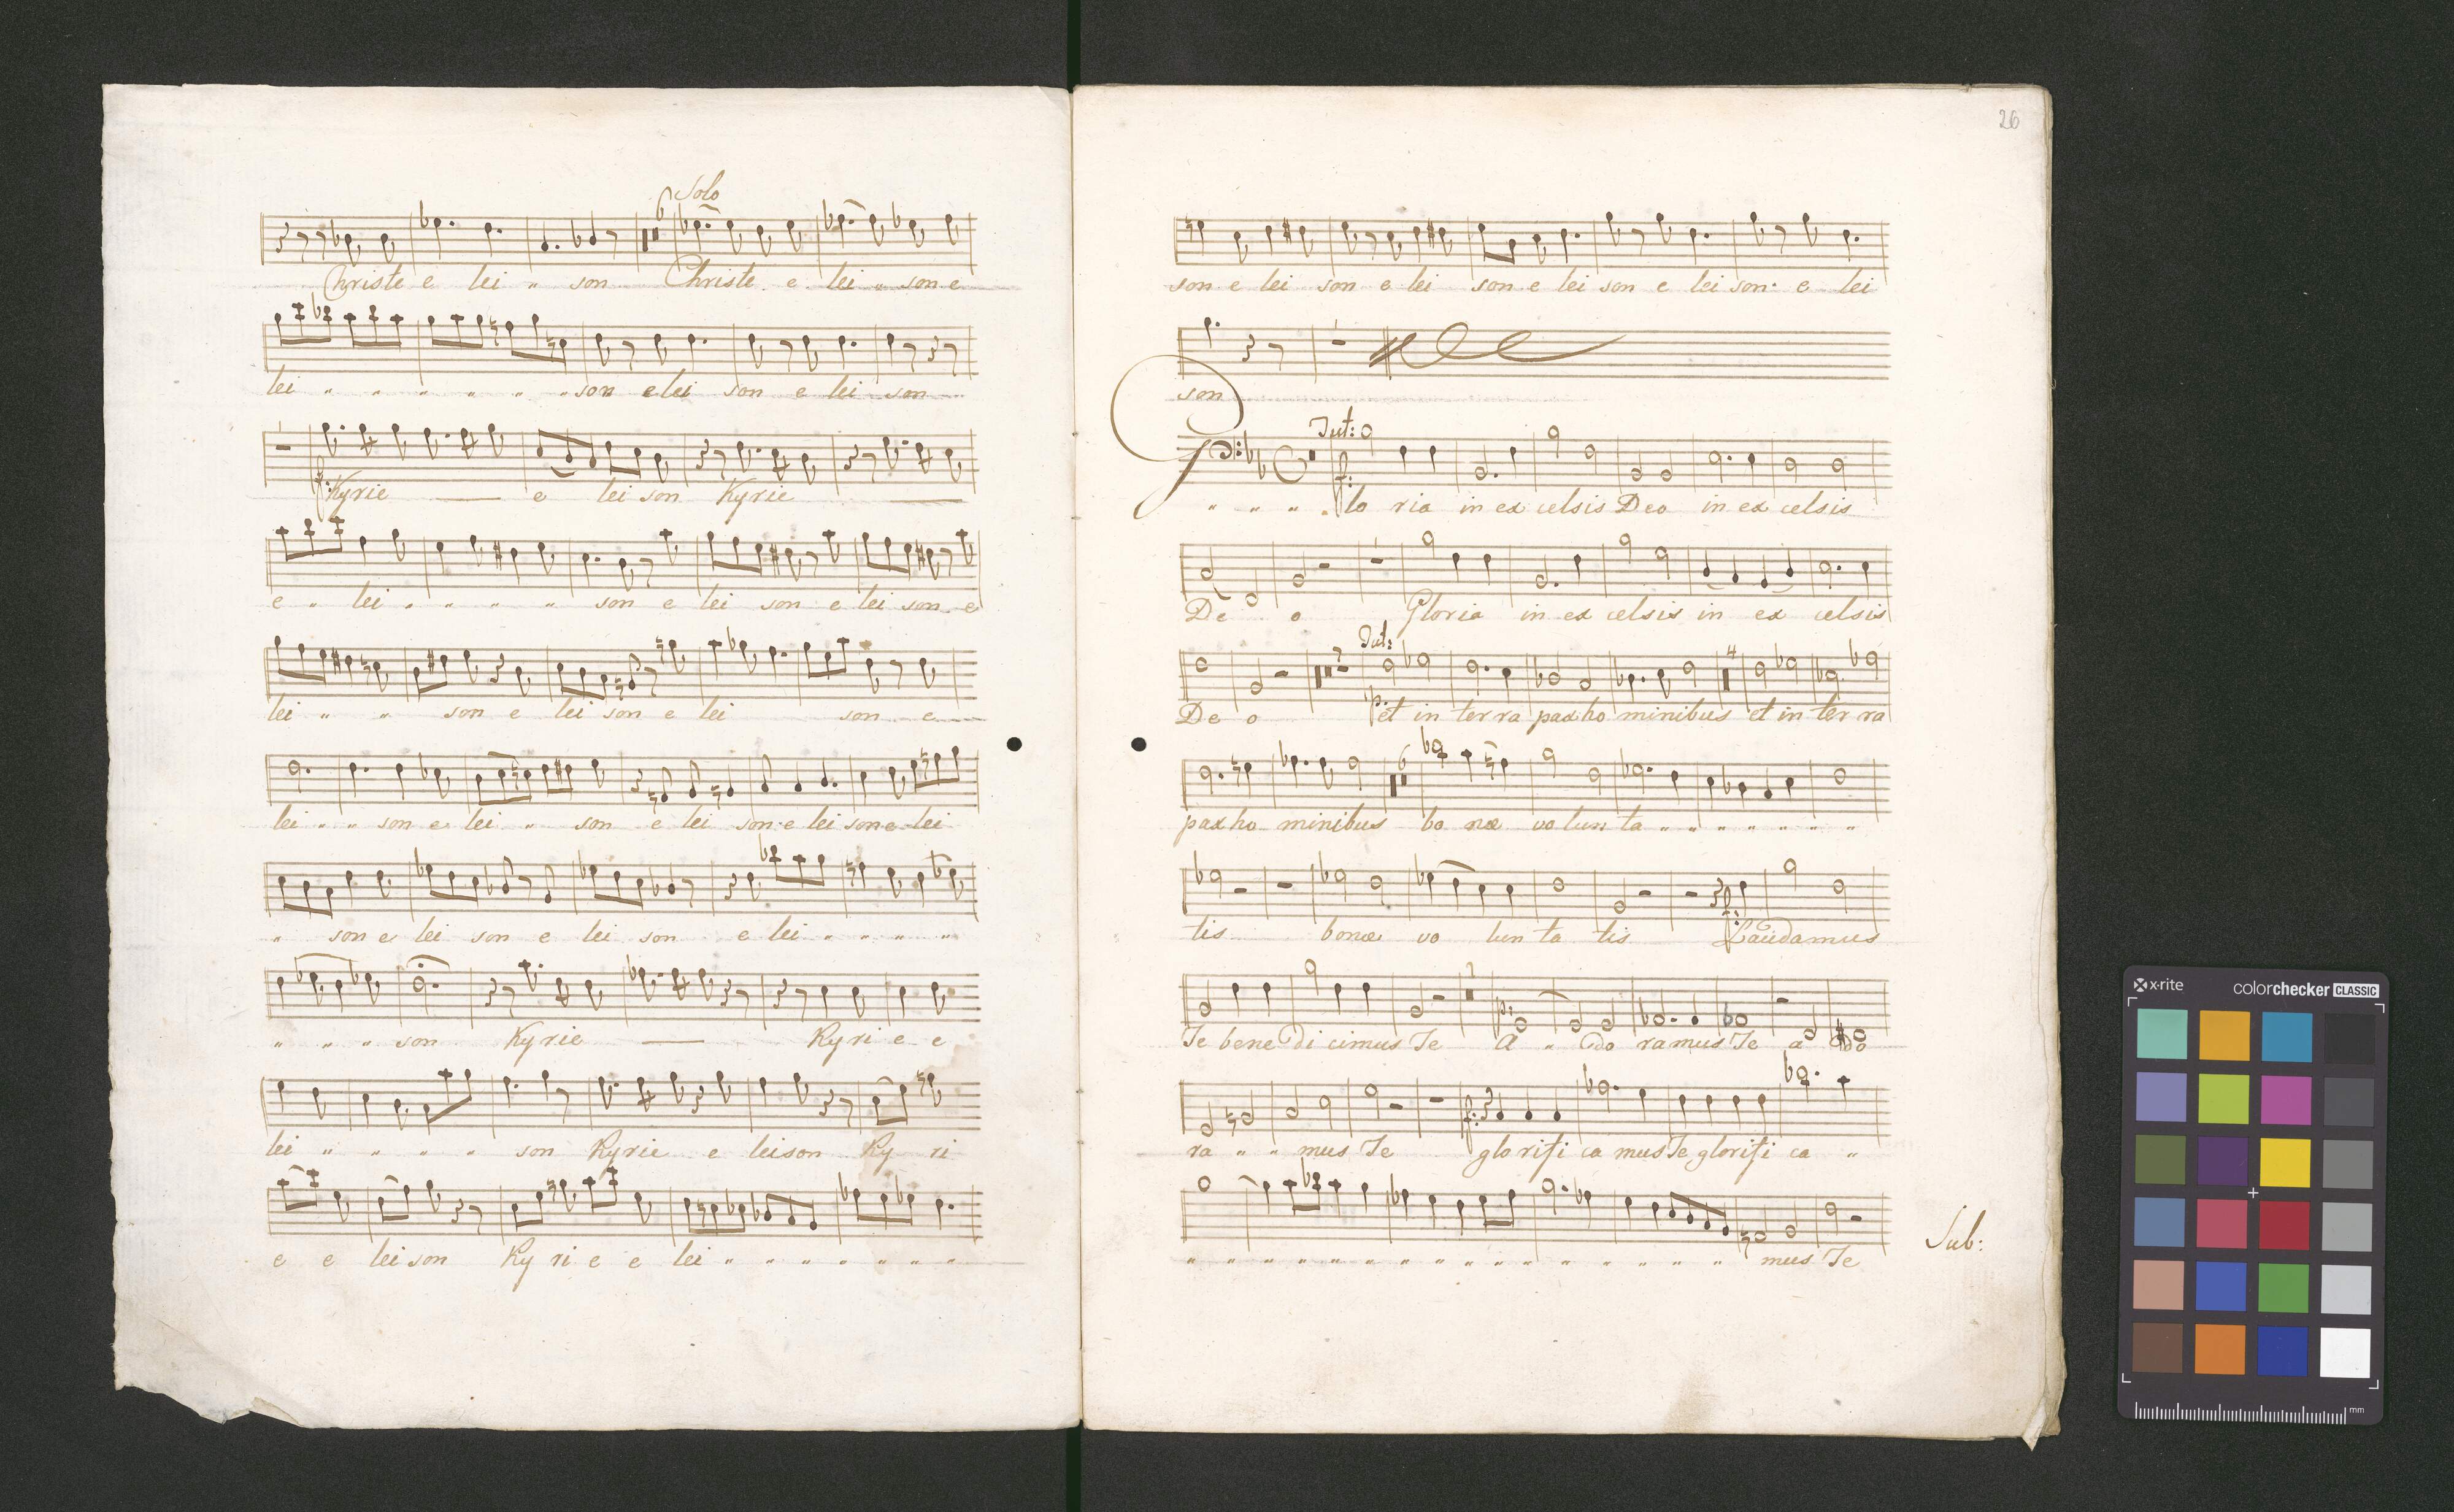 Solo
6
Christe e lei " son Christe e lei " son e
lei " " " " " " son e lei son e lei son
f: Kyrie e lei son Kyrie
e " lei " " " " son e lei son e lei son e
lei " " son e lei son e lei son e
lei " " son e lei " son e lei son e lei son e lei
" son e lei son e lei son e lei " " " "
" " " son Kyrie Kyri e e
lei " " " " son Kyrie e leison Ky ri
e e leison Ky ri e e lei " " " " " " "
26
son e lei son e lei son e lei son e lei son e lei
son
Tut:
f:
" " " " lo ria in ex celsis Deo in ex celsis
De o Gloria in ex celsis in ex celsis
2 Tut: 4
De o p: et in terra pax ho minibus et in terra
6
pax ho minibus bo næ volun ta " " " " " " "
tis bonæ vo lun ta tis f: Laudamus
1
p:
Te bene di cimus Te A " do ramus Te a do
f:
ra " " mus Te glorifi ca mus Te glorifi ca "
" " " " " " " " " " " " " " " " mus Te
Sub:
x-rite
colorchecker CLASSIC
mm